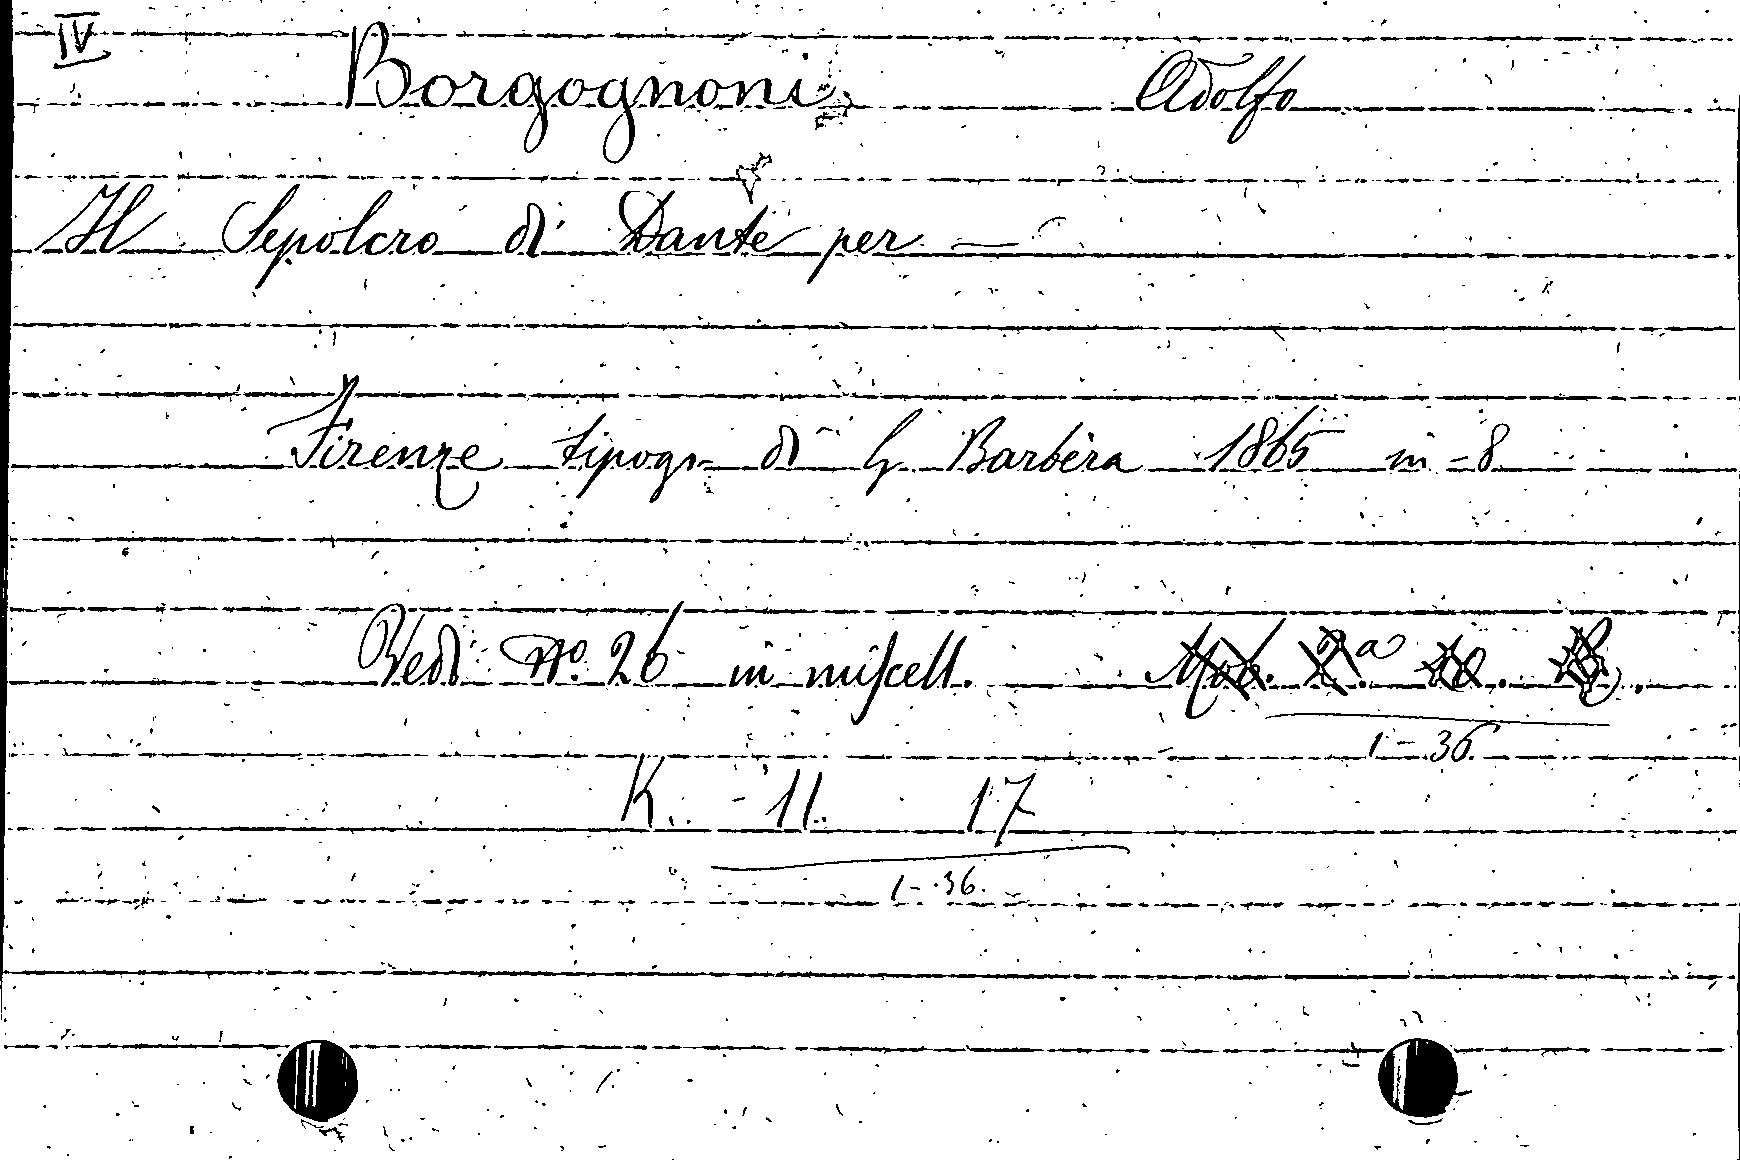 IV
Borgognoni Adolfo
Il Sepolcro di Dante per —
Firenze tipogr. di G Barbèra 1865 in -8
Vedi No. 26 in miscell. 2.a
1-36
K. - 11. 17
1-36.